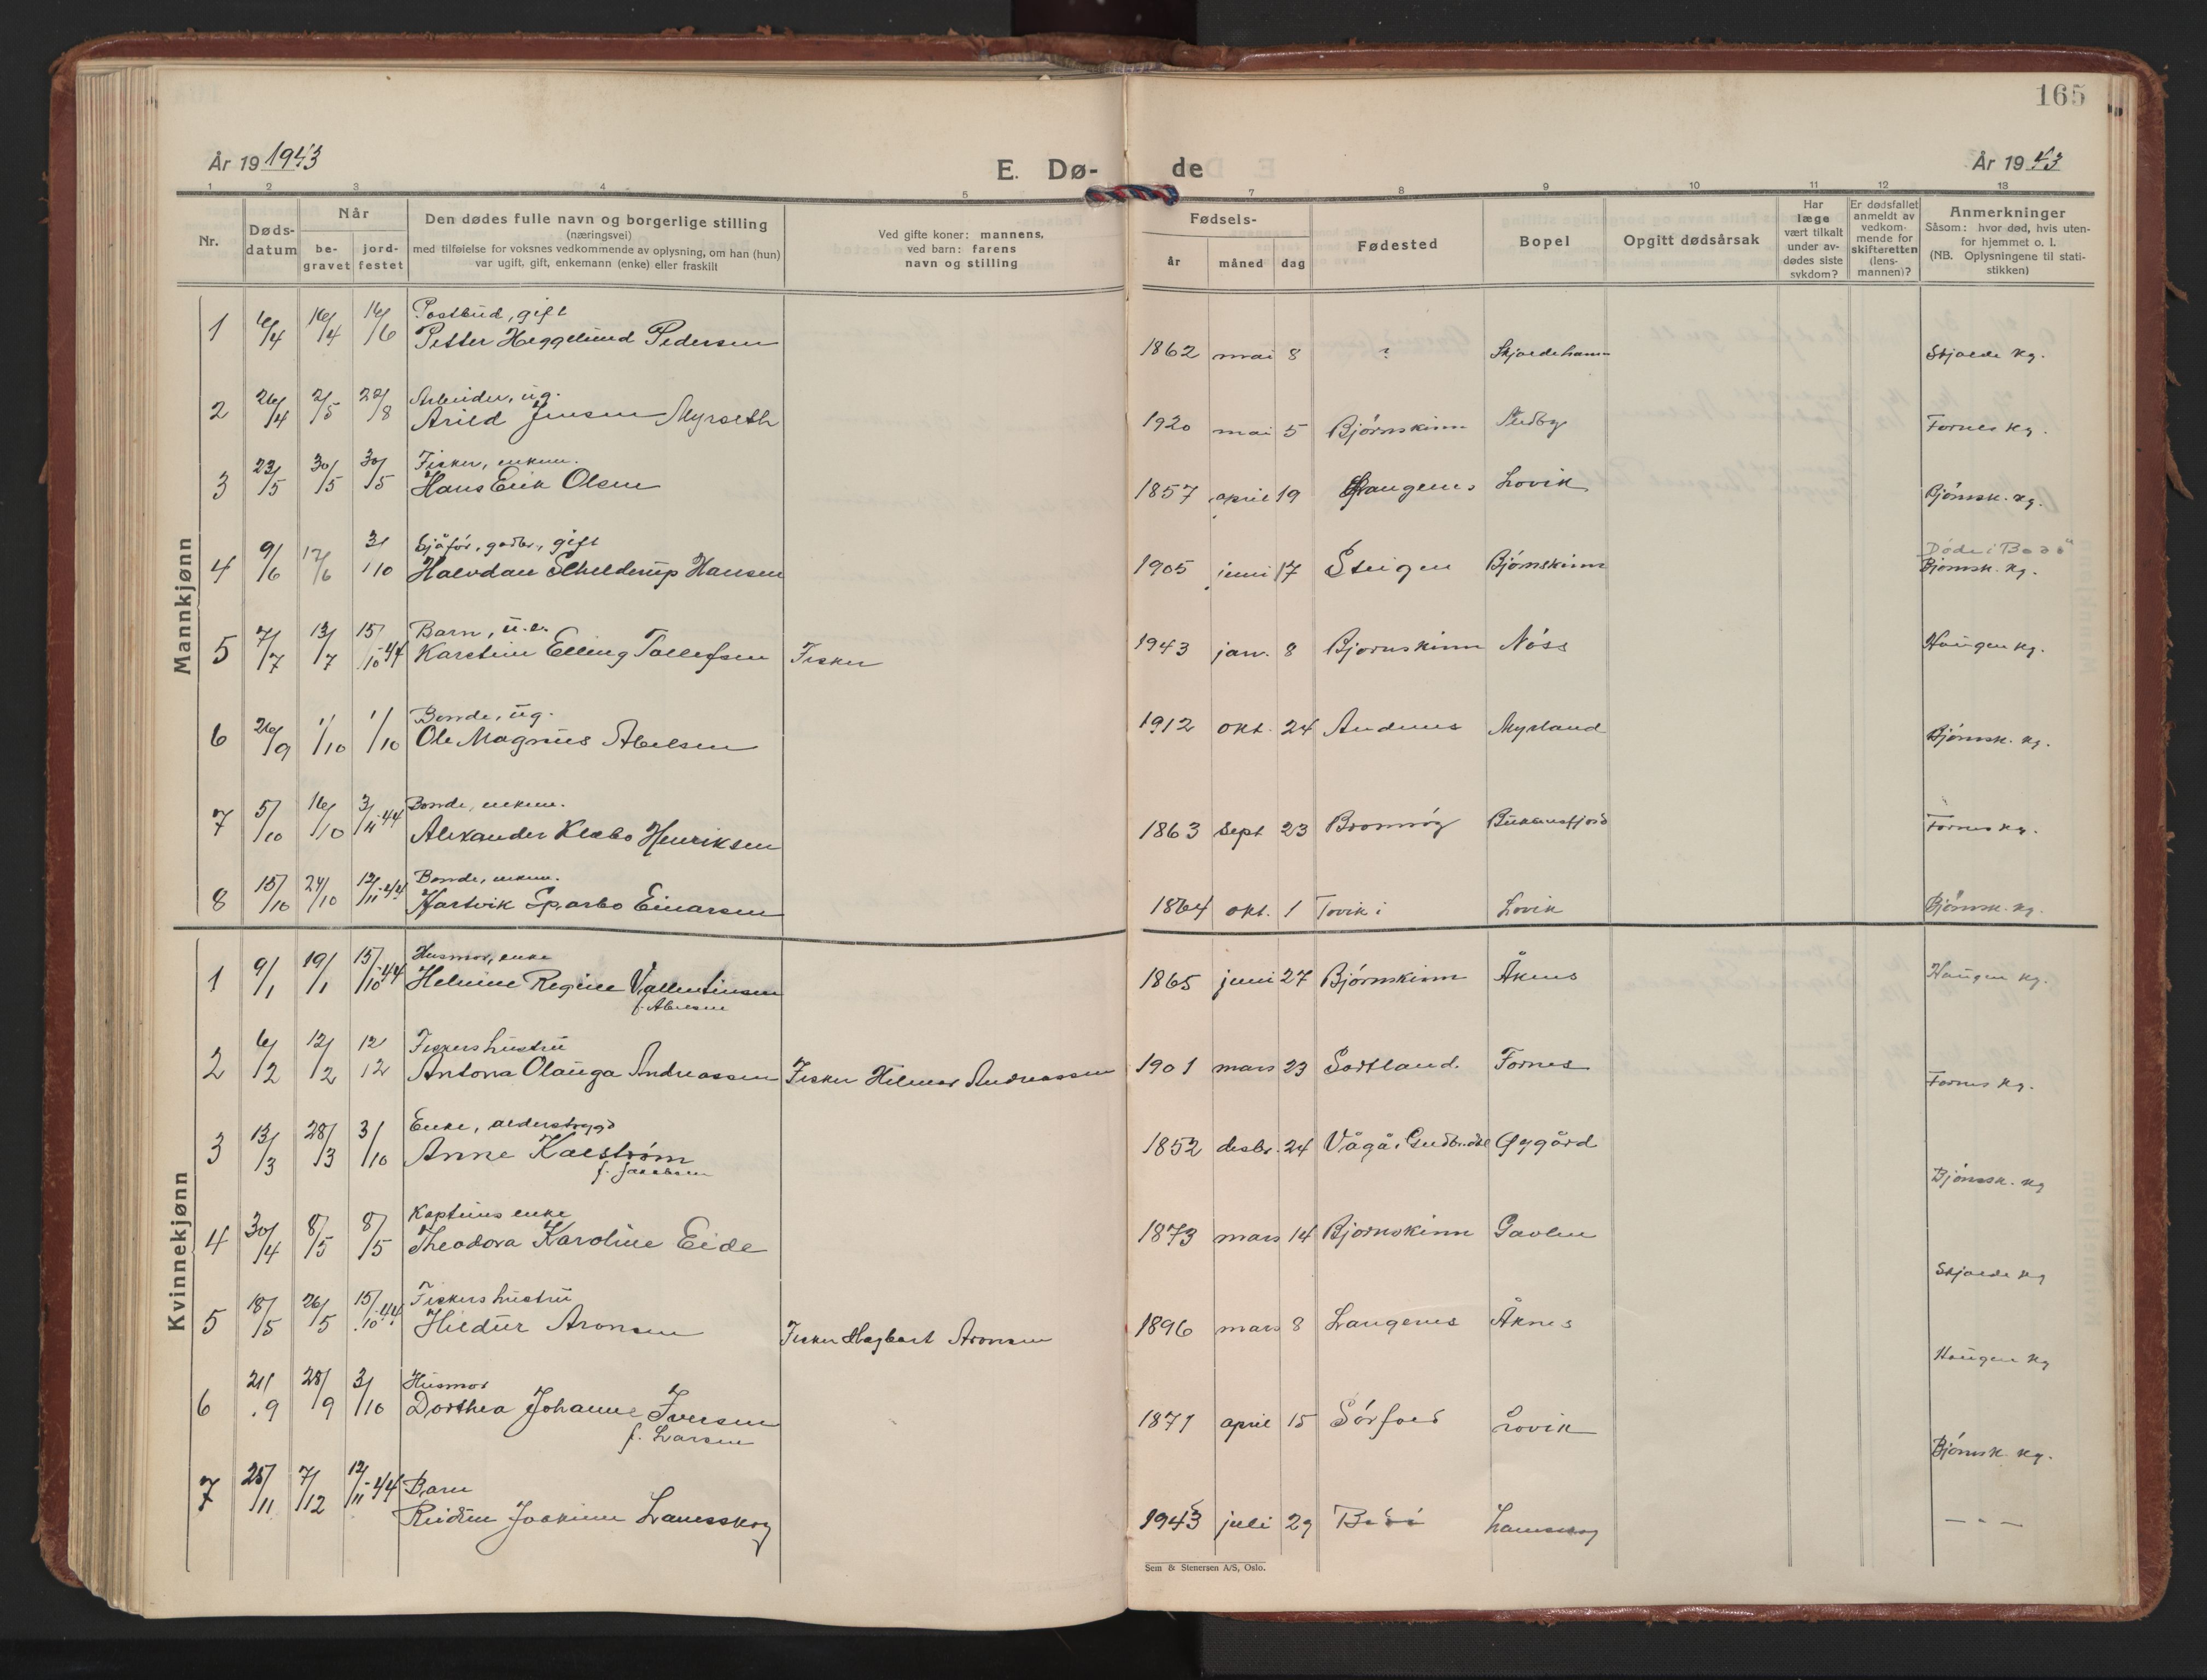 165
År 19 1943
E. Dø-
de
År 19 43
1 2 3 4 5 7 8 9 10 11 12 13
Nr.
Døds-
datum
Når
be-
gravet
jord-
festet
Den dødes fulle navn og borgerlige stilling
(næringsvei)
med tilføielse for voksnes vedkommende av oplysning, om han (hun)
var ugift, gift, enkemann (enke) eller fraskilt
Ved gifte koner: mannens,
ved barn: farens
navn og stilling
Fødsels-
år måned dag
Fødested
Bopel
Opgitt dødsårsak
Har
læge
vært tilkalt
under av-
dødes siste
sykdom?
Er dødsfallet
anmeldt av
vedkom-
mende for
skifteretten
(lens-
mannen)?
Anmerkninger
Såsom: hvor død, hvis uten-
for hjemmet o. l.
(NB. Oplysningene til stati-
stikken)
Mannkjønn
Postbud, gift
1 6/4 16/4 16/6 Petter Heggelund Pedersen 1862 mai 8 ? Skjoldehamn Skjolde kg.
Arbeider, ug.
2 26/4 2/5 22/8 Arild Jensen Myrseth 1920 mai 5 Bjørnskinn Nedby Fornes kg.
Fisker, enkem.
3 23/5 30/5 30/5 Hans Erik Olsen 1857 april 19 Langenes Lovik Bjørnsk. kg.
Sjåfør, gårdbr., gift
Døde i Bodø
4 9/6 17/6 3/10 Halvdan Schelderup Hansen 1905 juni 17 Steigen Bjørnskinn Bjørnsk. kg.
Barn, u.e.
5 7/7 13/7 15/10-44 Karstein Elling Tollefsen Fisker 1943 jan. 8 Bjørnskinn Nöss Haugen kg.
Bonde, ug.
6 26/9 1/10 1/10 Ole Magnus Abelsen 1912 okt. 24 Andenes Myrland Bjørnsk. kg.
Bonde, enkem.
7 5/10 16/10 3/11-44 Alexander Klæbo Henriksen 1863 sept 23 Bromnøy Bukknesfjord Fornes kg.
Bonde, enkem.
8 15/10 24/10 12/11-44 Hartvik Sparbo Einarsen 1864 okt. 1 Tovik i Lovik Bjørnsk. kg.
Kvinnekjønn
Husmor, enke
1 9/1 19/1 15/10-44 Helmine Regine Vallentinsen 1865 juni 27 Bjørnskinn Åknes Haugen kg.
f. Abelsen
Fiskers hustru
2 6/2 12/2 12 12 Antona Olauga Andreassen Fisker Hilmar Andreassen 1901 mars 23 Sortland. Fornes Fornes kg.
Enke, alderstrygd
3 13/3 28/3 3/10 Anne Kalstrøm 1852 desbr. 24 Vågå i Gudbr.dal Øygård Bjørnsk. kg
f. Jacobsen
Kapteins enke
4 30/4 8/5 8/5 Theodora Karoline Eide 1873 mars 14 Bjørnskinn Gavlen Skjolde kg
Fiskers hustru
5 18/5 26/5 15/10-44 Hildur Aronsen Fisker Hagbart Aronsen 1896 mars 8 Langenes Åknes Haugen kg
Husmor
6 21/9 28/9 3/10 Dorthea Johanne Iversen 1871 april 15 Sørfold Lovik Bjørnsk. kg.
f. Larsen
Barn
7 25/11 7/12 12/11-44 Reidun Joakime Lanesskog 1943 juli 29 Bodø Lanesskog — " —
Sem & Stenersen A/S, Oslo.